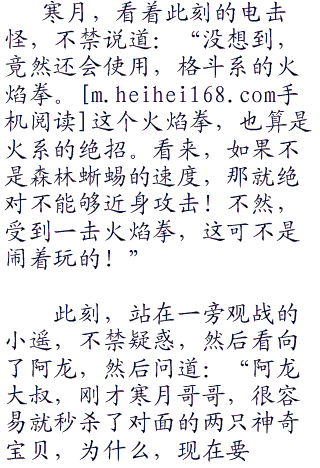 寒月，看着此刻的电击
怪，不禁说道：“没想到，
竟然还会使用，格斗系的火
焰拳。[m.heihei168.com手
机阅读]这个火焰拳，也算是
火系的绝招。看来，如果不
是森林蜥蜴的速度，那就绝
对不能够近身攻击！不然，
受到一击火焰拳，这可不是
闹着玩的！”
此刻，站在一旁观战的
小遥，不禁疑惑，然后看向
了阿龙，然后问道：“阿龙
大叔，刚才寒月哥哥，很容
易就秒杀了对面的两只神奇
宝贝，为什么，现在要